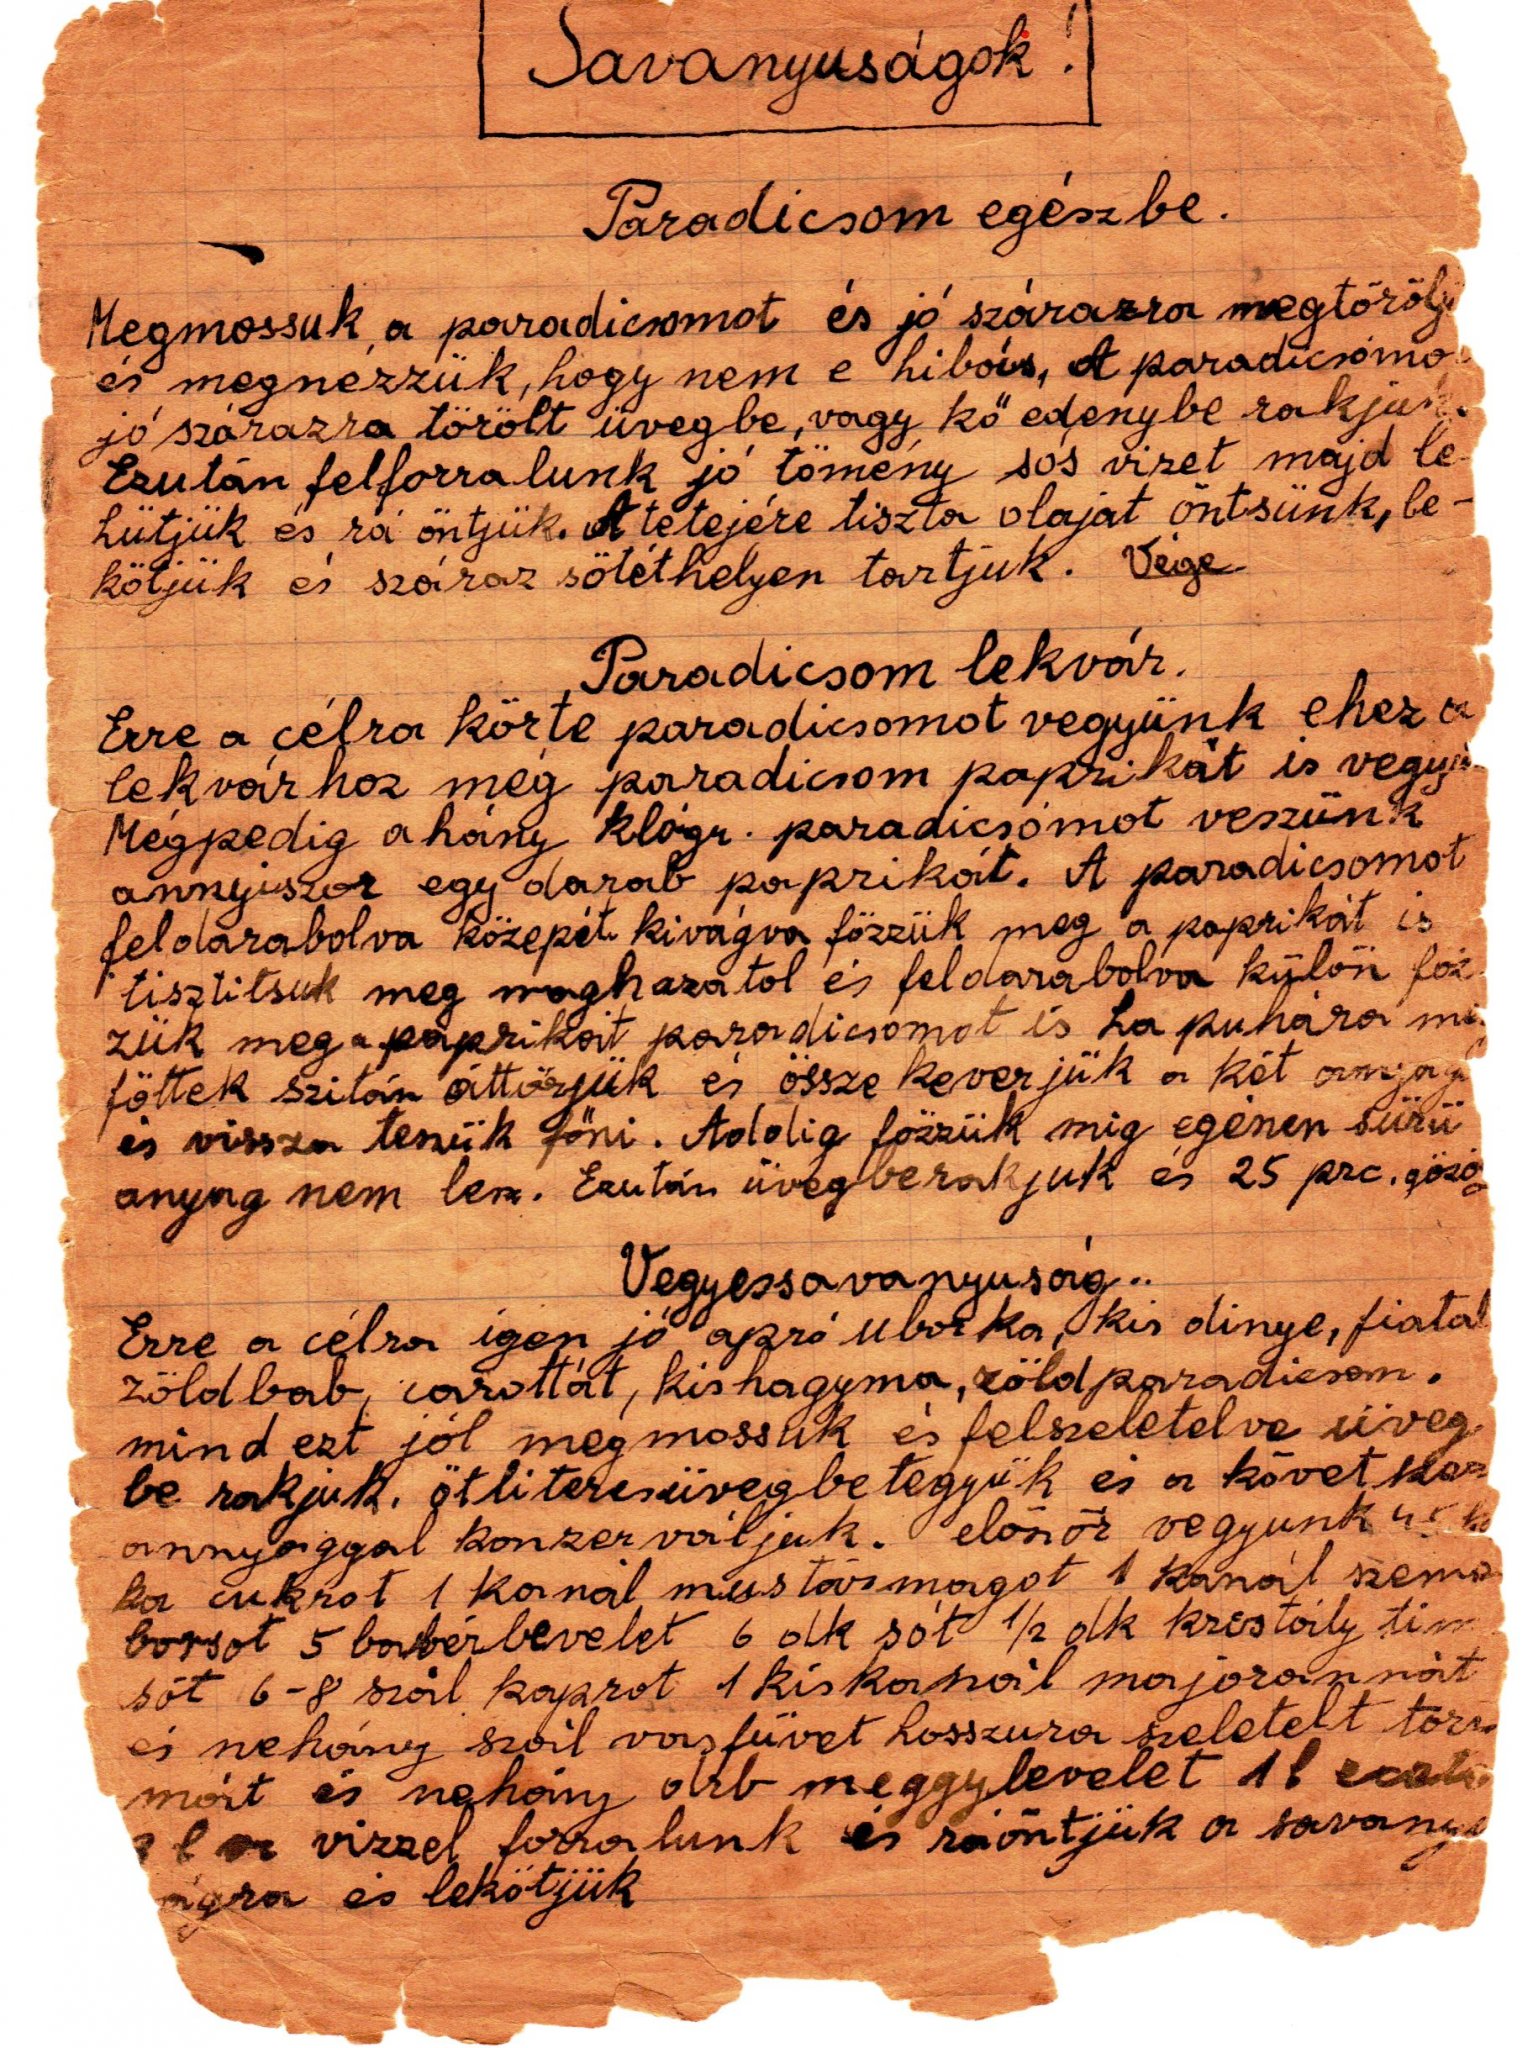 Savanyuságok!
Paradicsom egészbe.
Megmossuk, a paradicsomot és jó szárazra megtörölj
és megnézzük, hogy nem e hibás, A paradicsomo
jó szárazra törölt üvegbe, vagy kő edenybe rakjuk.
Ezután felforralunk jó tömény sós vizet majd le-
hütjük és rá öntjük. A tetejére tiszta olajat öntsünk, be-
kötjük és száraz sötéthelyen tartjuk. Vége
Paradicsom lekvár.
Erre a célra körte paradicsomot vegyünk ehez a
lekvárhoz még paradicsom paprikát is vegyü
Mégpedig ahány klógr. paradicsomot veszünk
annyiszor egy darab paprikát. A paradicsomot
feldarabolva közepét kivágva főzzük meg a paprikát is
tisztitsuk meg maghazatol és feldarabolva külön föz
zük meg a paprikát paradicsomot is ha puhára
föttek szitán áttörjük és össze keverjük a két anyag
és vissza teszük föni. Addig főzzük mig egénen sürü
anyag nem lesz. Ezután üvegberakjuk és 25 prc. gőzö
Vegyessavanyuság..
Erre a célra igen jó apró uborka, kis dinye, fiatal
zöldbab, carottát, kishagyma, zöldparadicsom.
mind ezt jól megmossuk és felszeletelve üveg-
be rakjuk. ötliteresüvegbetegyük és a követ
annyaggal konzerváljuk. elönör vegyunk
ka cukrot 1 kanál mustármagot 1 kanál szemes
borsot 5 babérlevelet 6 dk sót 1/2 dk kristály tim
sót 6-8 szál kaprot 1 kiskanál majorannát
és nehány szál vasfüvet hosszura szeletelt tor
mát és nehány drb meggylevelet 1 l
vizzel forralunk és ráöntjük a savanyu
ágra és lekötjük